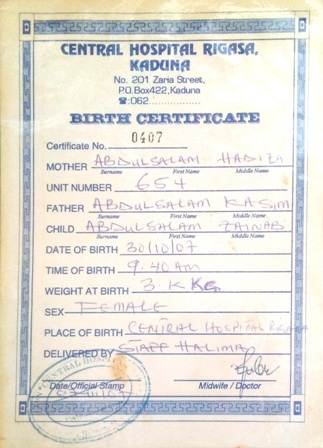 CENTRAL HOSPITAL RIGASA,
KADUNA
No. 201 Zaria Street,
P.O.Box422,Kaduna
☎:062..................
BIRTH CERTIFICATE
Certificate No. 0407
MOTHER ABDULSALAM HADIZA
Surname First Name Middle Name
UNIT NUMBER 654
FATHER ABDULSALAM KASIM
Surname First Name Middle Name
CHILD ABDULSALAM ZAINAB
Surname First Name Middle Name
DATE OF BIRTH 30/10/07
TIME OF BIRTH 9.40AM
WEIGHT AT BIRTH 3. Kg
SEX FEMALE
PLACE OF BIRTH CENTRAL HOSPITAL RIGASA
DELIVERED BY STAFF HALIMA
Date/Official Stamp Midwife / Doctor
CENTRAL